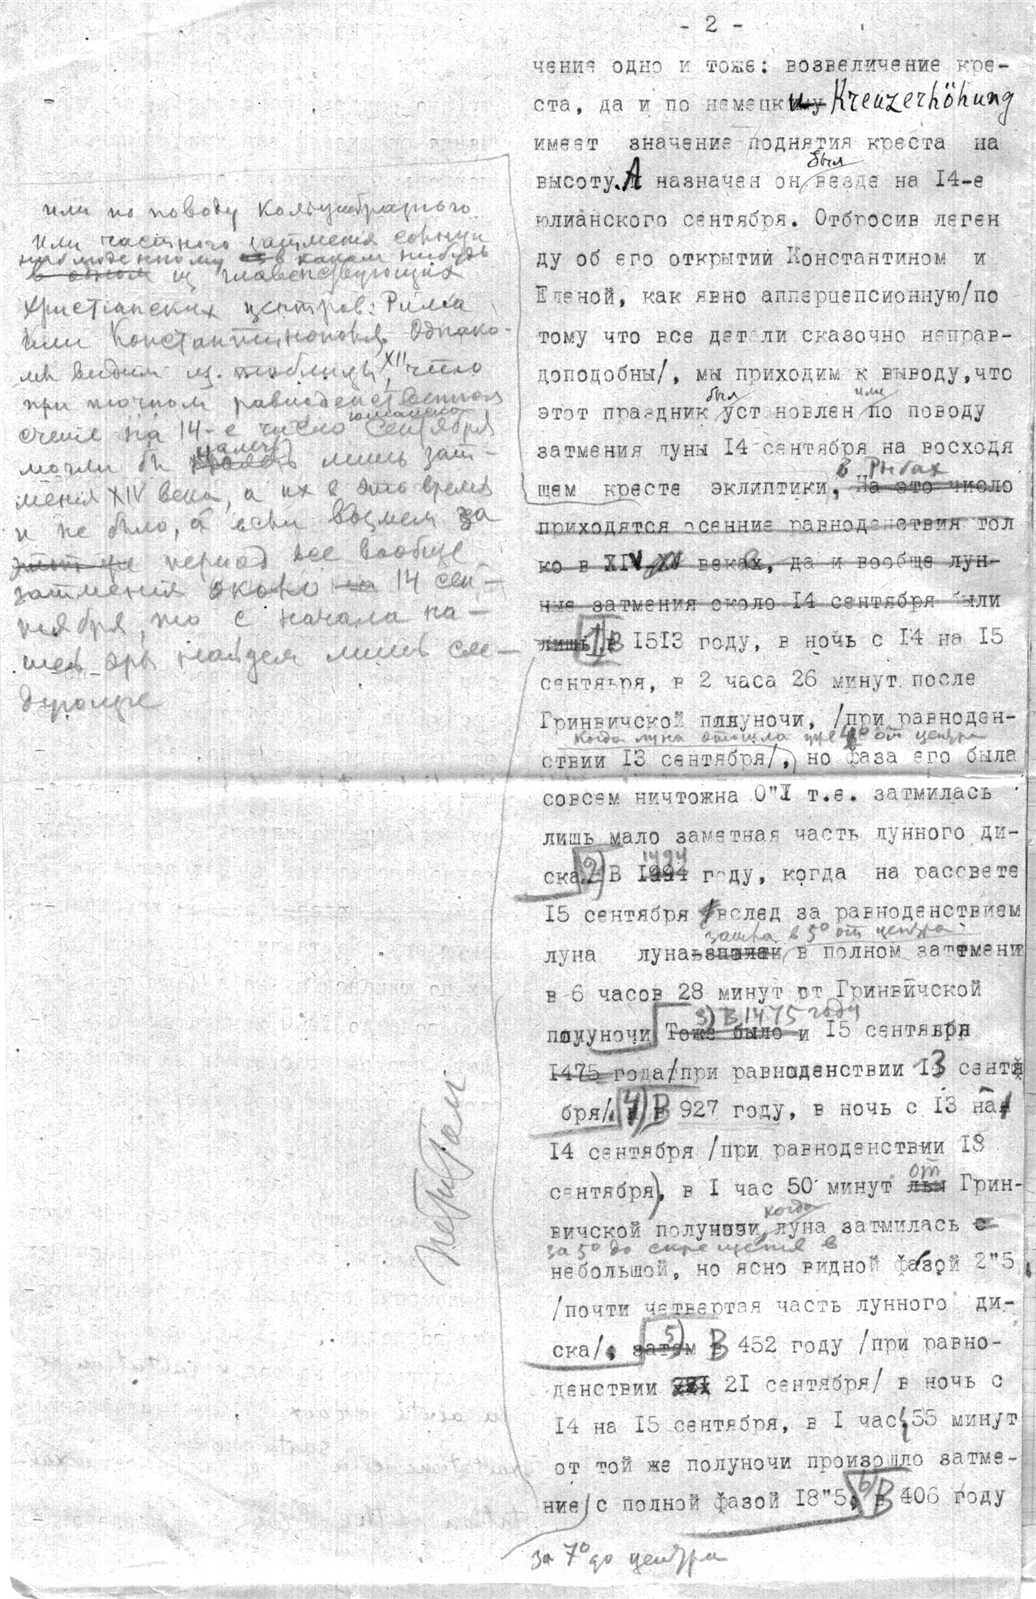 - 2 -
чение одно и тоже: возвеличение кре-
ста, да и по немецки Kreuzerhöhung
имеет значение поднятия креста на
был
высоту. А назначен он везде на 14-е
юлианского сентября. Отбросив леген
ду об его открытии Константином и
Еленой, как явно апперцепсионную/по
тому что все детали сказочно неправ-
доподобны/, мы приходим к выводу, что
был или
этот праздник установлен по поводу
затмения луны 14 сентября на восходя
в Рыбах
щем кресте эклиптики, На это число
приходятся осенние равноденствия тол
ко в XIV XV веках, да и вообще лун-
ные затмения около 14 сентября были
лишь 1) В 1513 году, в ночь с 14 на 15
сентября, в 2 часа 26 минут после
Гринвичской полуночи, /при равноден-
когда луна отошла уже 4° от центра
ствии 13 сентября/, но фаза его была
совсем ничтожна 0"1 т.е. затмилась
лишь мало заметная часть лунного ди-
1494
ска. 2) В 1994 году, когда на рассвете
15 сентября вслед за равноденствием
зашла в 5° от центра
луна луна зашла в полном затмени
в 6 часов 28 минут от Гринвичской
3) В 1475 году
полуночи Тоже было и 15 сентября
1475 года/при равноденствии 13 сентя
бря/. 4) В 927 году, в ночь с 13 на
14 сентября /при равноденствии 18
от
сентября), в 1 час 50 минут Грин-
когда
вичской полуночи, луна затмилась с
за 5° до скрещения в
небольшой, но ясно видной фазой 2"5,
/почти четвертая часть лунного ди-
ска/, 5) затем В 452 году /при равно-
денствии 21 сентября/ в ночь с
14 на 15 сентября, в 1 час 55 минут
от той же полуночи произошло затме-
ние с полной фазой 18"5, 6) В 406 году
за 7° до центра
или по поводу кольцеобразного
или частного затмения солнца
наблюденному в каком нибудь
в одном из главенствующих
Христианских центров: Рима
или Константинополя. Однако-
мы видим из таблицы XII, что
при точном равноденственном
юлианско
счете на 14-е число сентября
могли бы лишь зат-
мения XIV века, а их в это время
и не было, а если возьмем за
этот же период все вообще
затмения около на 14 сен-
тября, то с начала на-
шей эры найдем лишь сле-
дующие
петитом